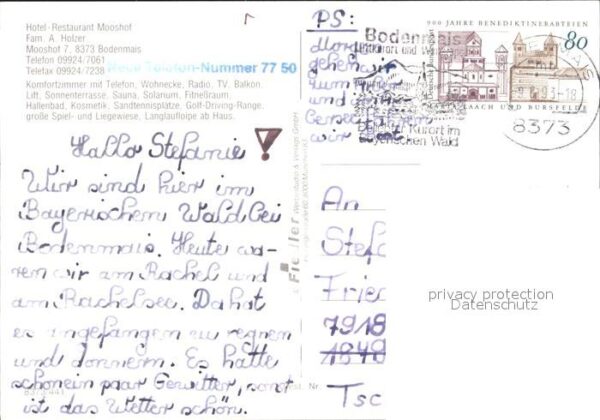 Hotel-Restaurant Mooshof
Fam. A. Holzer
Mooshof 7, 8373 Bodenmais
Telefon 09924/7061
Telefax 09924/7238
Neue Telefon-Nummer 77 50
Komfortzimmer mit Telefon, Wohnecke, Radio, TV, Balkon,
Lift, Sonnenterrasse, Sauna, Solarium, Fitneßraum,
Hallenbad, Kosmetik, Sandtennisplätze, Golf-Driving-Range,
große Spiel- und Liegewiese, Langlaufloipe ab Haus.
Hallo Stefanie!
Wir sind hier im
Bayerischen Wald bei
Bodenmais. Heute wa-
ren wir am Rachel und
am Rachelsee. Da hat
es angefangen zu regnen
und donnern. Es hatte
schon ein paar Gewitter, sonst
ist das Wetter schön.
PS:
Morgen
gehen wir
zum
und
wir
Bodenmais
Kurort im
Bayerischen Wald
900 JAHRE BENEDIKTINERABTEIEN
80
LAACH UND BURSFELDE
8373
An
Stef
Frie
7918
1848
Tsc
privacy protection
Datenschutz